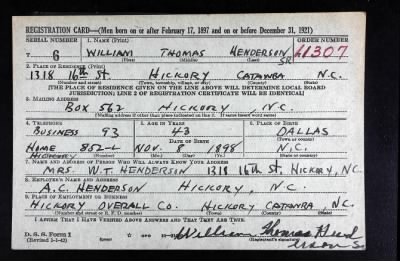 REGISTRATION CARD—(Men born on or after February 17, 1897 and on or before December 31, 1921)
SERIAL NUMBER 1. NAME (Print) ORDER NUMBER
T 6 WILLIAM THOMAS HENDERSON SR 41307
(First) (Middle) (Last)
2. PLACE OF RESIDENCE (Print)
1318 16th St. HICKORY CATAWBA N.C.
(Number and street) (Town, township, village, or city) (County) (State)
[THE PLACE OF RESIDENCE GIVEN ON THE LINE ABOVE WILL DETERMINE LOCAL BOARD
JURISDICTION; LINE 2 OF REGISTRATION CERTIFICATE WILL BE IDENTICAL]
3. MAILING ADDRESS
BOX 562 HICKORY, N.C.
[Mailing address if other than place indicated on line 2. If same insert word same]
4. TELEPHONE 5. AGE IN YEARS 6. PLACE OF BIRTH
BUSINESS 93 43 DALLAS
DATE OF BIRTH (Town or county)
HOME 852-L NOV. 5 1898 N.C.
HICKORY (Mo.) (Day) (Yr.) (State or country)
7. NAME AND ADDRESS OF PERSON WHO WILL ALWAYS KNOW YOUR ADDRESS
MRS. W.T. HENDERSON 1318 16th St, HICKORY, NC.
8. EMPLOYER'S NAME AND ADDRESS
A.C. HENDERSON HICKORY, N.C.
9. PLACE OF EMPLOYMENT OR BUSINESS
HICKORY OVERALL CO. HICKORY CATAWBA, N.C.
(Number and street or R. F. D. number) (Town) (County) (State)
I AFFIRM THAT I HAVE VERIFIED ABOVE ANSWERS AND THAT THEY ARE TRUE.
D. S. S. Form 1
(Revised 1-1-42) (Registrant's signature)
William Thomas Hend
erson Sr